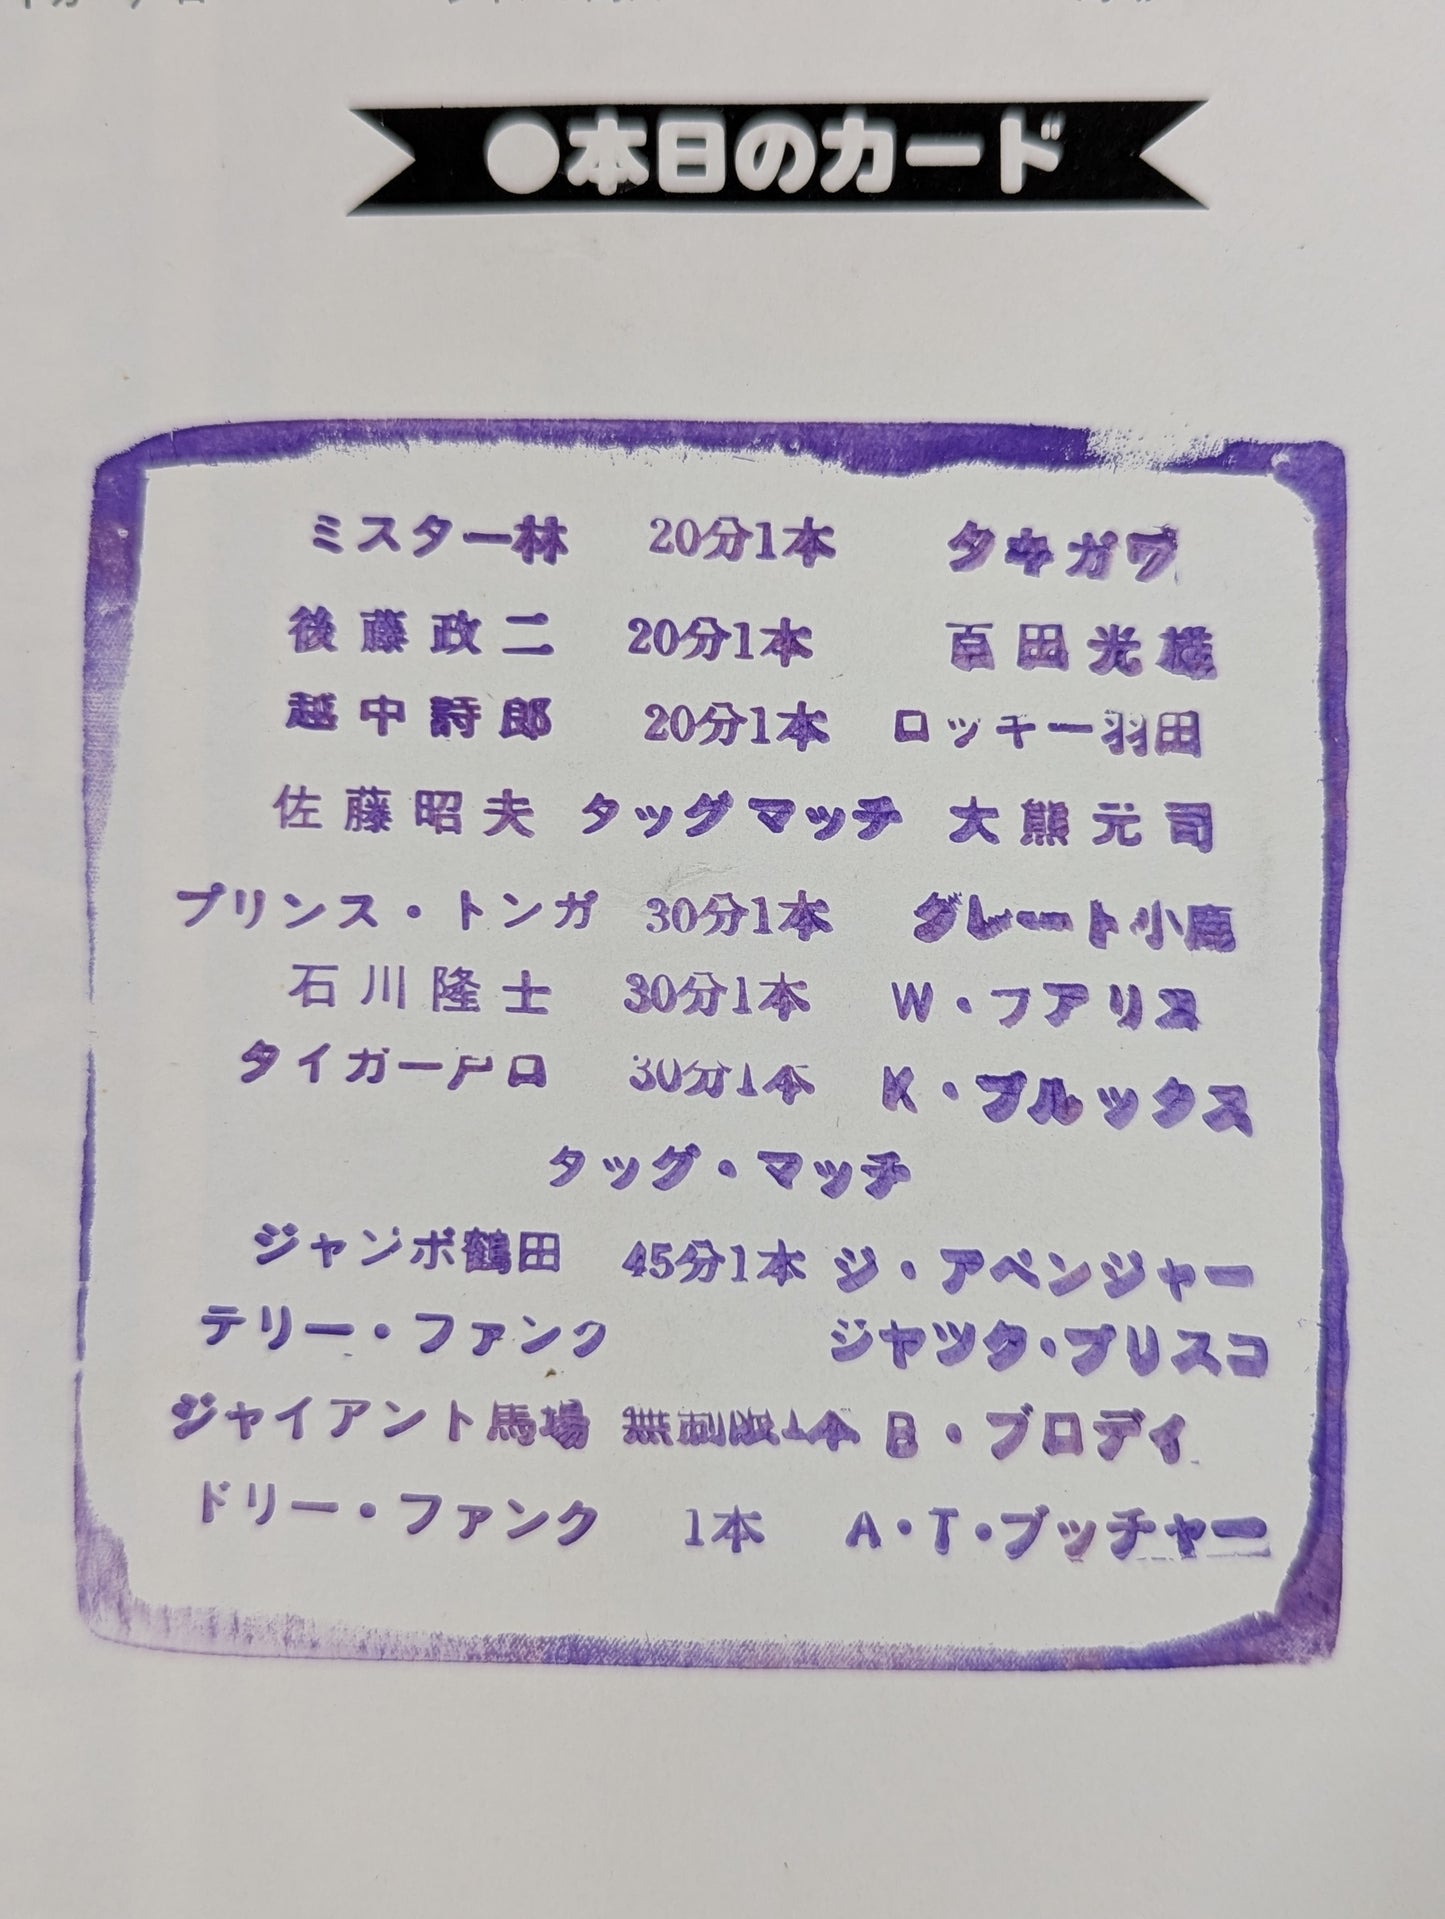 ●本日のカード
ミスター林 20分1本 タキガワ
後藤政二 20分1本 百田光雄
越中詩郎 20分1本 ロッキー羽田
佐藤昭夫 タッグマッチ 大熊元司
プリンス・トンガ 30分1本 グレート小鹿
石川隆士 30分1本 W・ファリス
タイガー戸口 30分1本 K・ブルックス
タッグ・マッチ
ジャンボ鶴田 45分1本 ジ・アベンジャー
テリー・ファンク ジヤツク・ブリスコ
ジャイアント馬場 無制限1本 B・ブロデイ
ドリー・ファンク 1本 A・T・ブッチャー